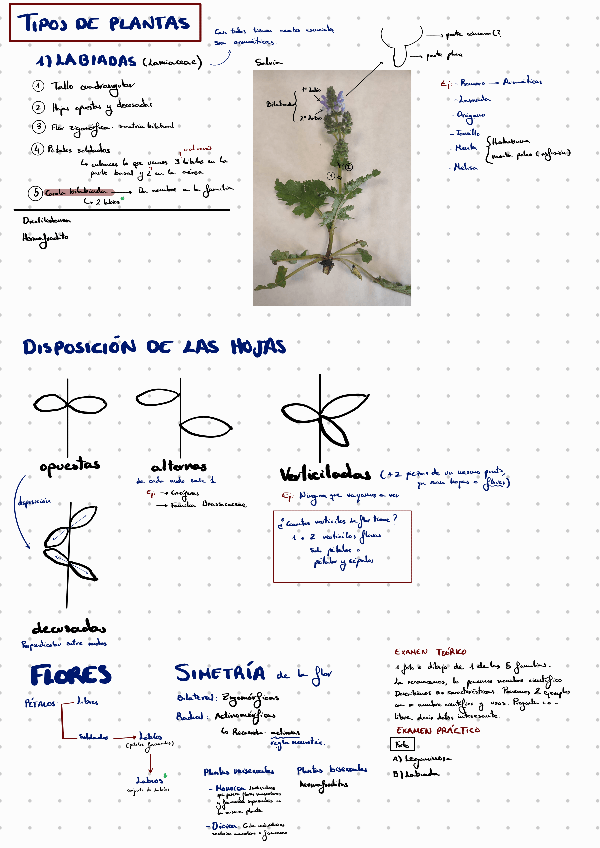 TIPOS DE PLANTAS
Casi todas tienen aceites esenciales,
son aromáticas
1) LABIADAS (Lamiaceae)
① Tallo cuadrangular
② Hojas opuestas y decusadas
③ Flor zigomórfica: simetría bilateral
④ Pétalos soldados
↳ entonces lo que vemos 3 lóbulos en la
parte basal y 2 en la
⑤ Corola bilabiada → Da nombre a la familia
↳ 2 labios
Dicotiledónea
Hermafrodita
Salvia
Bilabiada
1º labio
2º labio
①
②
parte
parte
Ej: Romero → Aromáticas
- Lavanda
- Orégano
- Tomillo
- Menta
- Melisa
Hierbabuena
menta poleo (infusión)
DISPOSICIÓN DE LAS HOJAS
opuestas
alternas
de cada nudo sale 1
Ej. → Crucíferas
→ Familia Brassicaceae
Verticiladas (+2 piezas de un mismo punto,
ya sean hojas o flores)
Ej. Ninguna que vayamos a ver
¿Cuántos verticilos de flor tiene?
1 o 2 verticilos florales
Solo pétalos o
pétalos y sépalos
disposición
decusadas
Perpendicular entre nudos
FLORES
PÉTALOS → Libres
→ Soldados → Lóbulos
(pétalos fusionados)
Labios
conjunto de lóbulos
SIMETRÍA de la flor
Bilateral: Zigomórficas
Radial: Actinomórficas
↳ Recuerda: actinias
regla mnemotécnica
Plantas unisexuales
- Monoicas: individuos
que poseen flores masculinas
y femeninas separadas en
la misma planta
- Dioicas: Cada individuo
masculino o femenino
Plantas bisexuales
Hermafroditas
EXAMEN TEÓRICO
1 foto o dibujo de 1 de las 5 familias.
La reconocemos, le ponemos nombre científico
Describimos sus características. Ponemos 2 ejemplos
con su nombre científico y usos. Pregunta
libre, decir datos interesantes.
EXAMEN PRÁCTICO
Foto
A) Leguminosa
B) Labiada